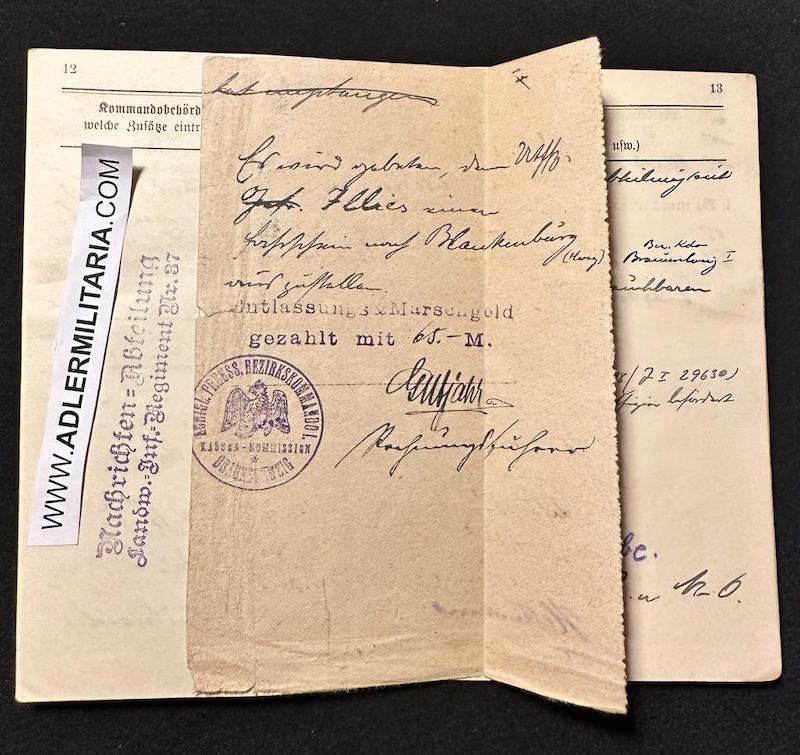 12
Kommandobehörd
welche Zusätze eintr
WWW.ADLERMILITARIA.COM
Nachrichten=Abteilung
Landw.=Inf.=Regiment Nr. 37
hat empfangen
Es wird gebeten, dem Uffz.
Gefr. Illies einen
Fahrschein nach Blankenburg
(Harz)
auszustellen.
Entlassungs & Marschgeld
gezahlt mit 65.- M.
Gutjahr
Rechnungsführer
KÖNIGL. PREUSS. BEZIRKSKOMMANDO I.
KASSEN-KOMMISSION
BRAUNSCHWEIG
13
usw.)
Bez. Kdo
Braunschweig I
J I 2963
befördert